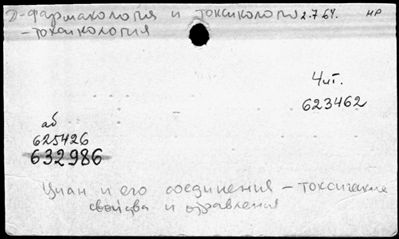 Д-фармакология и токсикология 2.7.64. НР
-токсикология
Чит.
623462
аб
625426
632986
Циан и его соединения - токсические
свойства и отравления